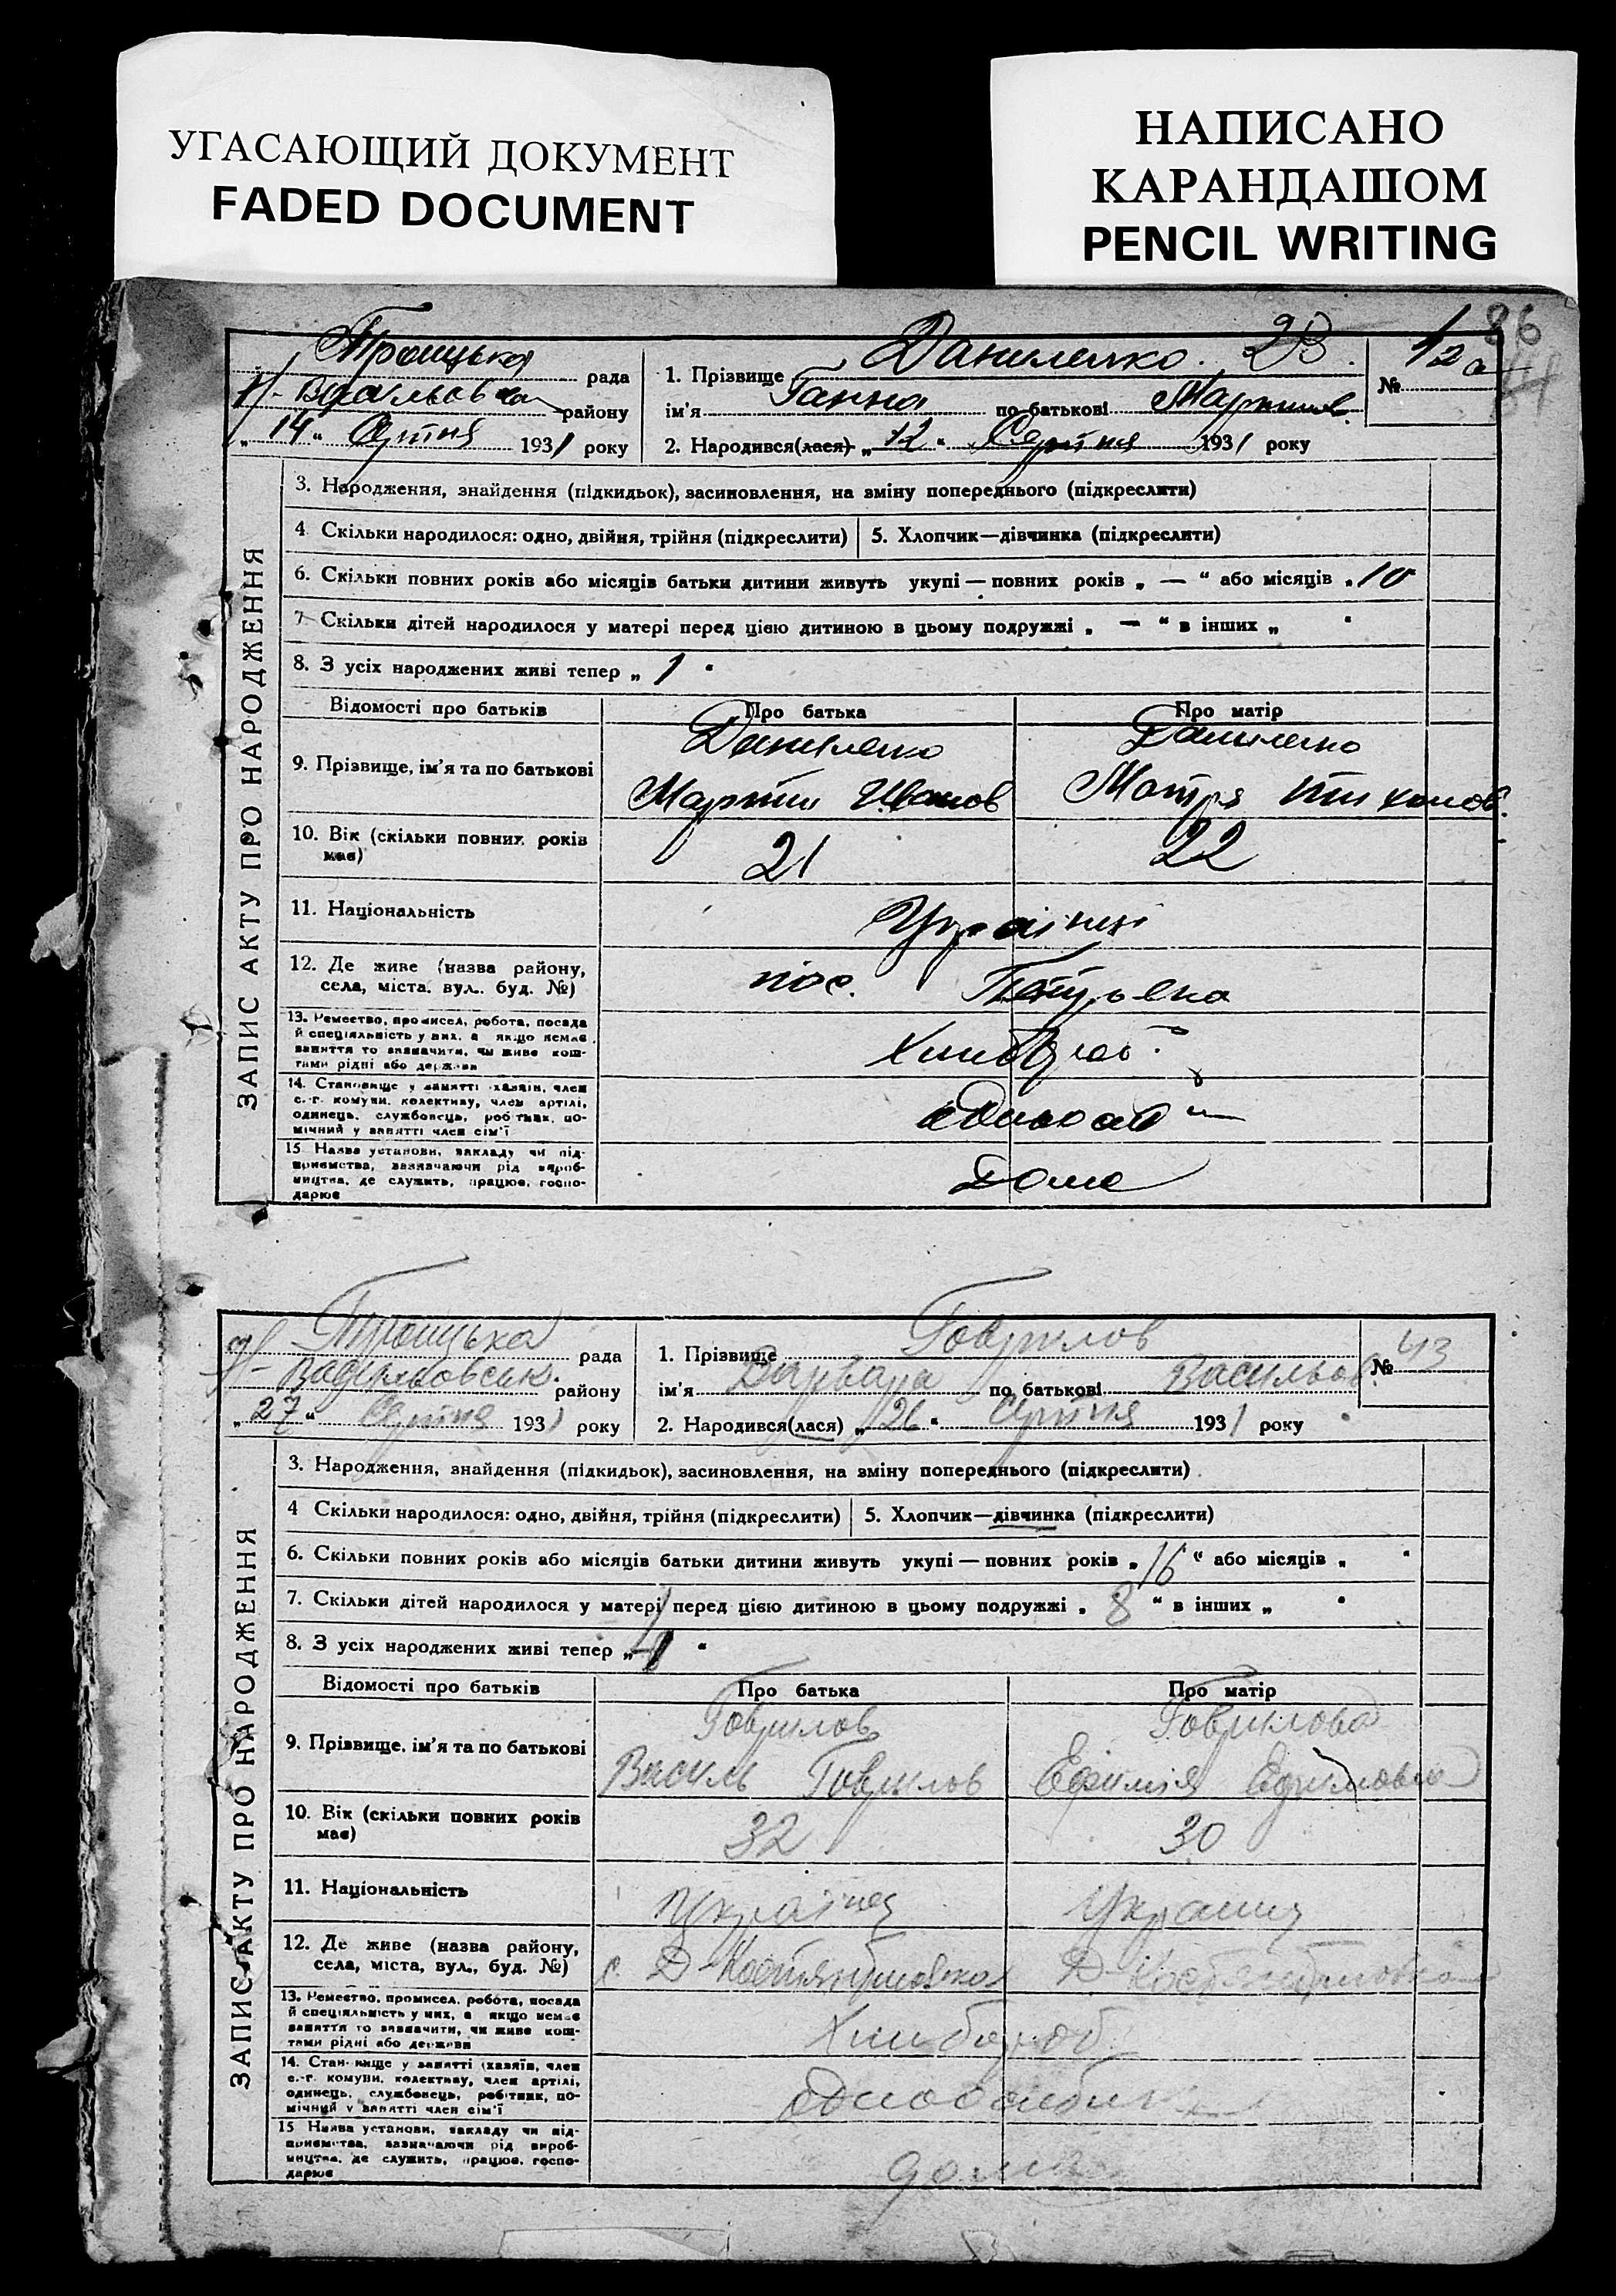 УГАСАЮЩИЙ ДОКУМЕНТ
FADED DOCUMENT
НАПИСАНО
КАРАНДАШОМ
PENCIL WRITING
86
ЗАПИС АКТУ ПРО НАРОДЖЕННЯ
Троицька рада
району
„14" Серпня 1931 року
1. Прізвище Даниленко. 23.
ім'я Ганна по батькові Мартинов.
2. Народився(лася) „12" Серпня 1931 року
№ 42а
3. Народження, знайдення (підкидьок), засиновлення, на зміну попереднього (підкреслити)
4 Скільки народилося: одно, двійня, трійня (підкреслити)
5. Хлопчик—дівчинка (підкреслити)
6. Скільки повних років або місяців батьки дитини живуть укупі — повних років „ — " або місяців „10
7 Скільки дітей народилося у матері перед цією дитиною в цьому подружжі „ — " в інших „ "
8. З усіх народжених живі тепер „ 1 "
Відомості про батьків Про батька Про матір
9. Прізвище, ім'я та по батькові
Даниленко Даниленко
Мартин Иванов Мотря Тихонов.
10. Вік (скільки повних років має) 21 22
11. Національність Українці
12. Де живе (назва району, села, міста, вул., буд. №) пос.
13. Ремество, промисел, робота, посада
й спеціяльність у них, а якщо немає
заняття то зазначити, чи живе кош-
тами рідні або держави
Хлібороб.
14. Становище у занятті (хазяїн, член
с.-г. комуни, колективу, член артілі,
одинець, службовець, робітник, по-
мічний у занятті член сім'ї
15 Назва установи, закладу чи під-
приємства, зазначаючи рід вироб-
ництва, де служить, працює, госпо-
дарює
Дома
ЗАПИС АКТУ ПРО НАРОДЖЕННЯ
Троицька рада
району
„27" Серпня 1931 року
1. Прізвище Гаврилов
ім'я Варвара по батькові Васильов.
2. Народився(лася) „26" Серпня 1931 року
№ 43
3. Народження, знайдення (підкидьок), засиновлення, на зміну попереднього (підкреслити)
4 Скільки народилося: одно, двійня, трійня (підкреслити)
5. Хлопчик—дівчинка (підкреслити)
6. Скільки повних років або місяців батьки дитини живуть укупі — повних років „16" або місяців „ "
7. Скільки дітей народилося у матері перед цією дитиною в цьому подружжі „ 8 " в інших „ "
8. З усіх народжених живі тепер „ "
Відомості про батьків Про батька Про матір
9. Прізвище, ім'я та по батькові
Гаврилов Гаврилова
Василь Гаврилов Ефимія Ефимовна
10. Вік (скільки повних років має) 32 30
11. Національність Українец
12. Де живе (назва району, села, міста, вул., буд. №)
с. Д-Костянтиновка Д-Костянтиновка
13. Ремество, промисел, робота, посада
й спеціяльність у них, а якщо немає
заняття то зазначити, чи живе кош-
тами рідні або держави
Хлібороб
14. Становище у занятті (хазяїн, член
с.-г. комуни, колективу, член артілі,
одинець, службовець, робітник, по-
мічний у занятті член сім'ї
15 Назва установи, закладу чи під-
приємства, зазначаючи рід вироб-
ництва, де служить, працює, госпо-
дарює
дома